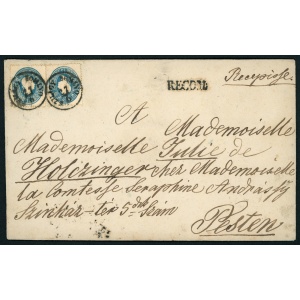 RECOM.
Recepisse.
A Mademoiselle
Mademoiselle Julie de
Holczinger chez Mademoiselle
la Comtesse Seraphine Andrássy
Szinház-tér 5dik Szám
Pesten